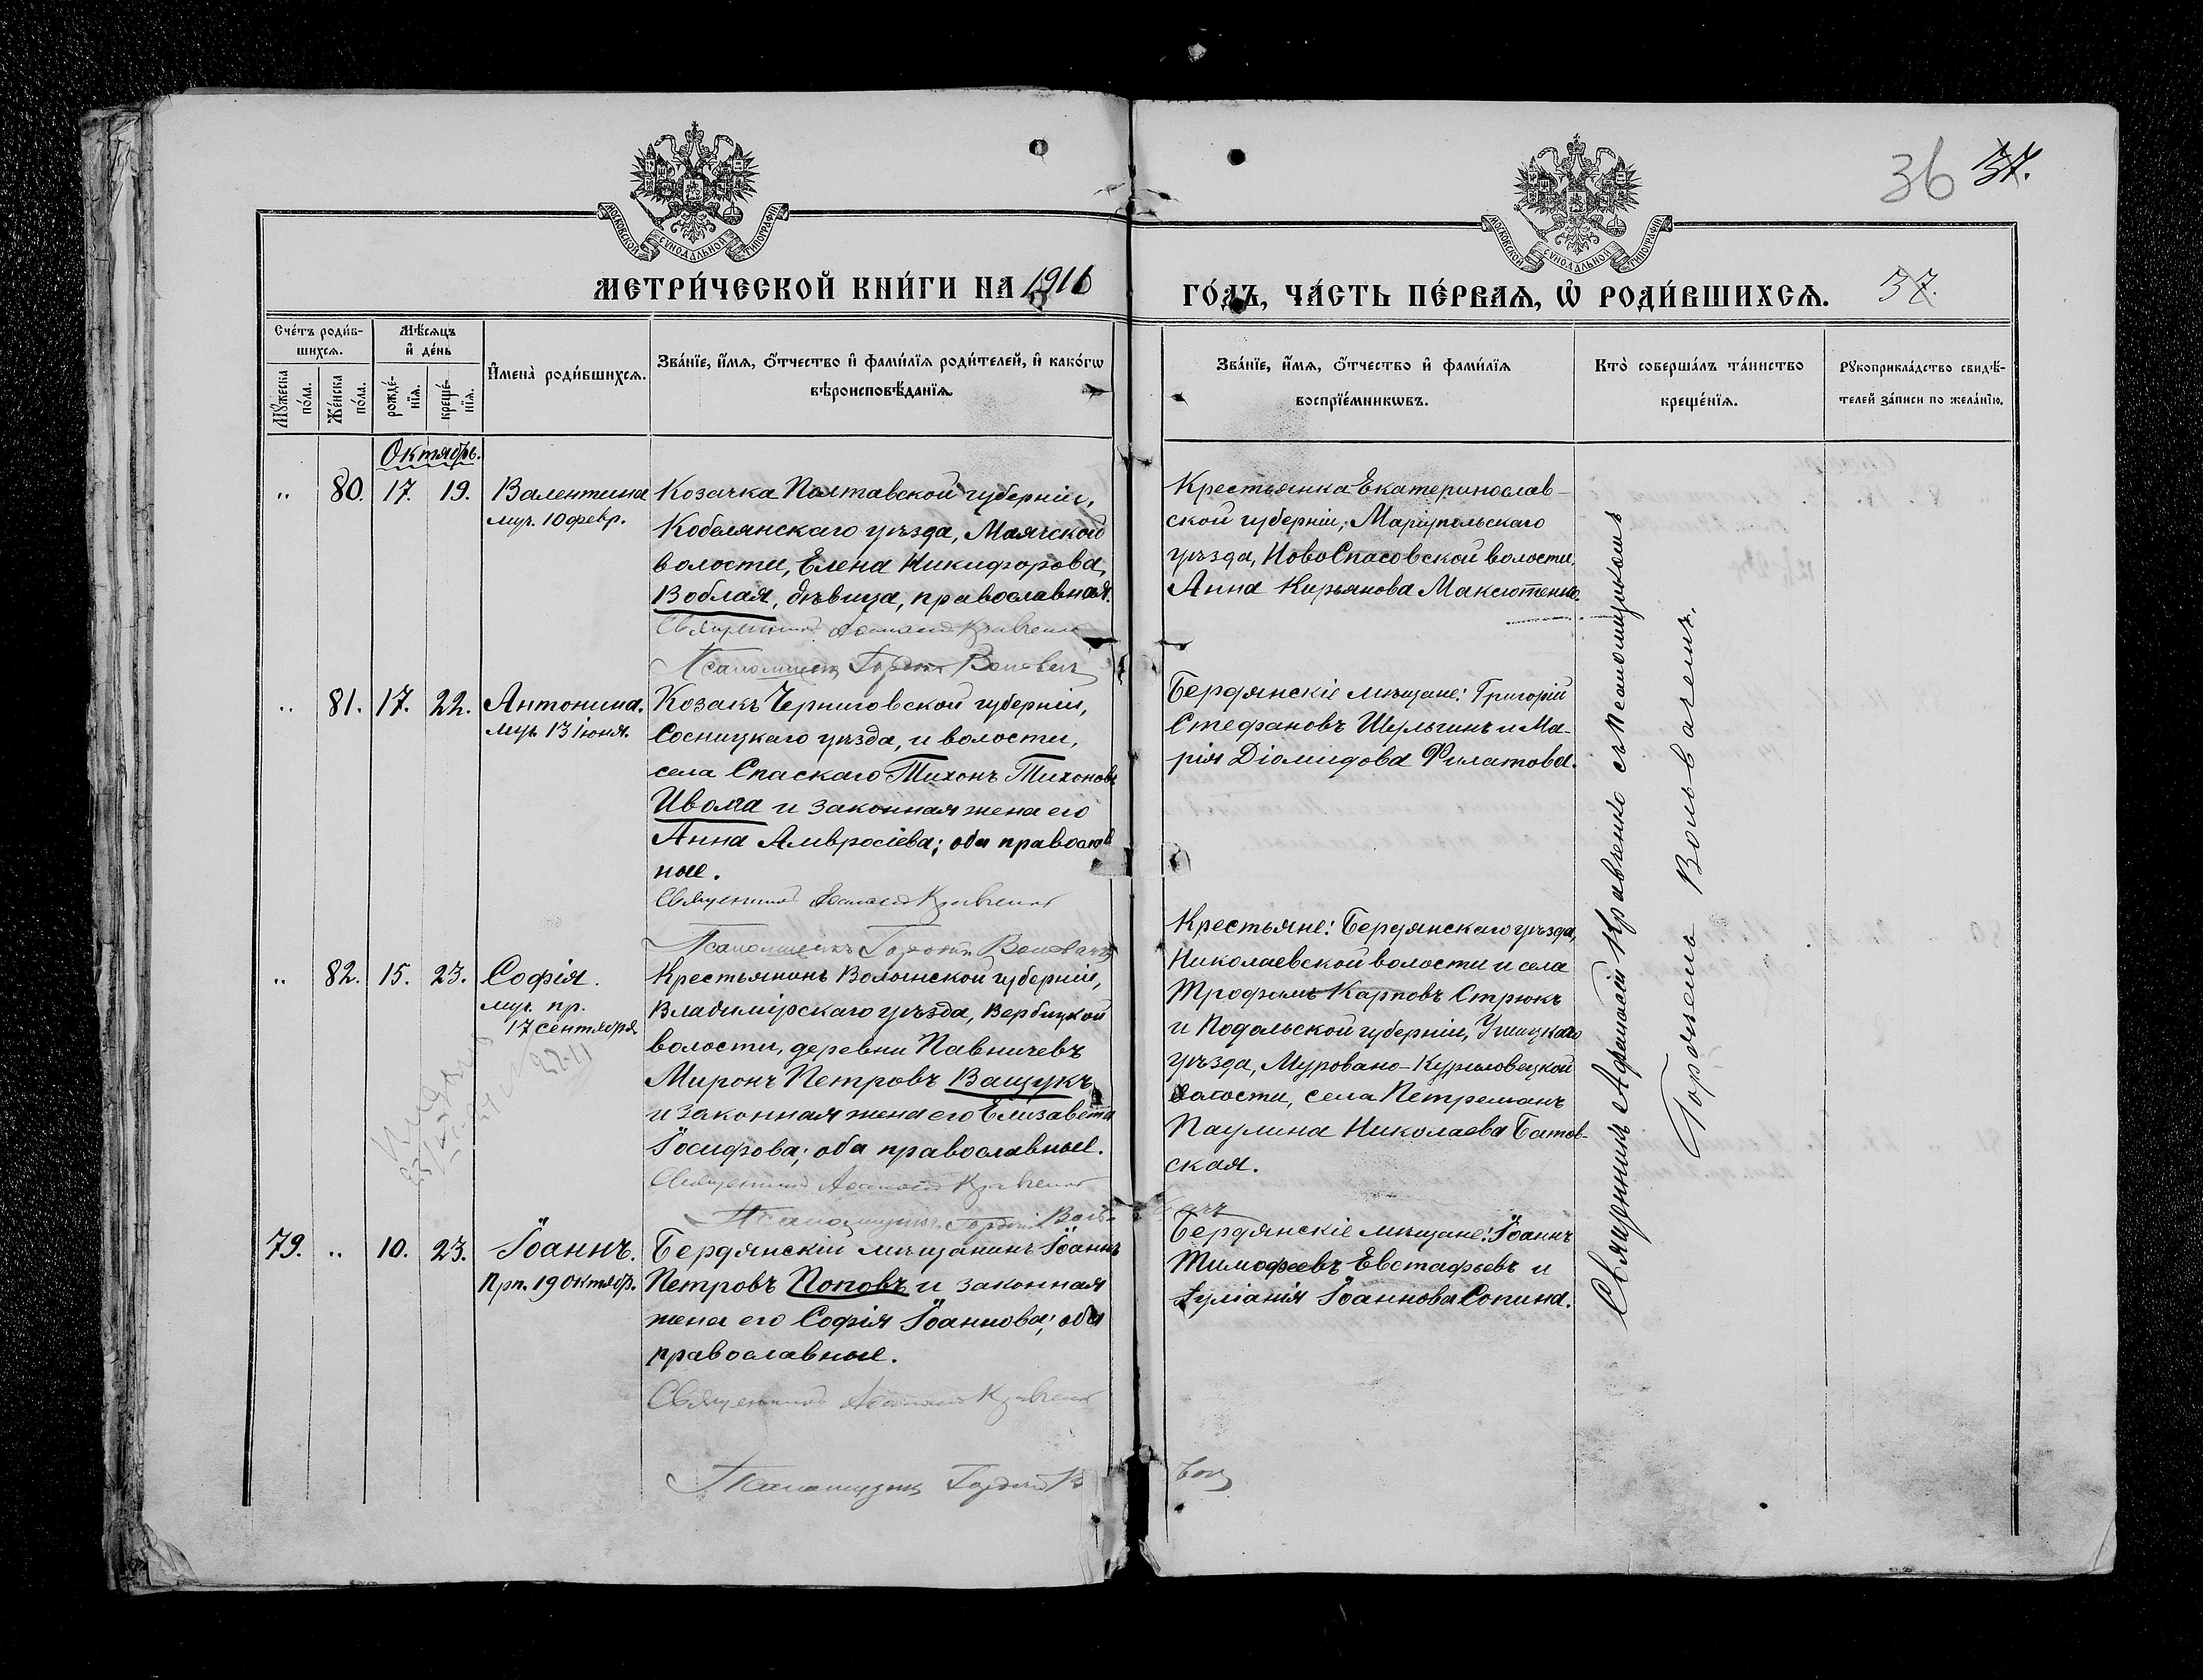 36 37.
МОСКОВСКОЙ СУНОДАЛЬНОЙ ТИПОГРАФІИ
МОСКОВСКОЙ СУНОДАЛЬНОЙ ТИПОГРАФІИ
МЕТРИ́ЧЕСКОЙ КНИ́ГИ НА 1916
ГО́ДЪ, ЧА́СТЬ ПЕ́РВАѦ, Ѡ҆ РОДИ́ВШИХСѦ. 37.
Сче́тъ роди́в-
шихсѧ.
Мѣ́сѧцъ
и҆ де́нь
Мꙋ́жеска
по́ла.
Же́нска
по́ла.
рожде́-
нїѧ.
креще́-
нїѧ.
И҆мена̀ роди́вшихсѧ.
Зва́нїе, и҆́мѧ, ѻ҆́тчество и҆ фами́лїѧ роди́телей, и҆ како́гѡ
вѣроисповѣ́данїѧ.
Зва́нїе, и҆́мѧ, ѻ҆́тчество и҆ фами́лїѧ
воспрїе́мникѡвъ.
Кто̀ соверша́лъ та́инство
креще́нїѧ.
Рꙋкоприкла́дство свидѣ́-
телей за́писи по жела́нїю.
Октябрь.
„ 80. 17. 19. Валентина
муч. 10 февр.
Козачка Полтавской губерніи,
Кобелянскаго уѣзда, Маячской
волости, Елена Никифорова
Воблая, дѣвица, православная.
Священникъ Афанасій Кравченко
Псаломщикъ Гордѣй
Крестьянка Екатеринослав-
ской губерніи, Маріупольскаго
уѣзда, НовоСпасовской волости,
Анна Кирьянова Максютенко.
„ 81. 17. 22. Антонина.
муч. 13 іюня.
Козакъ Черниговской губерніи,
Сосницкаго уѣзда, и волости,
села Спаскаго Тихонъ Тихоновъ
Иволга и законная жена его
Анна Амвросіева; оба православ
ные.
Священникъ Афанасій Кравченко
Псаломщикъ Гордѣй
Бердянскіе мѣщане: Григорій
Стефановъ Шульгинъ и Ма-
рія Діомидова Филатова.
„ 82. 15. 23. Софія.
муч. пр.
17 сентября
Крестьянинъ Волынской губерніи,
Владимірскаго уѣзда, Вербицкой
волости, деревни Павничевъ
Миронъ Петровъ Ващукъ
и законная жена его Елизавета
Іосифова; оба православные.
Священникъ Афанасій Кравченко
Псаломщикъ Гордѣй
Крестьяне: Бердянскаго уѣзда,
Николаевской волости и села
Трофимъ Карповъ Стрюкъ
и Подольской губерніи, Ушицкаго
уѣзда, Муровано-Куриловецкой
волости, села Петреманъ
Паулина Николаева Батов-
ская.
79. „ 10. 23. Іоаннъ.
Прп. 19 октябр.
Бердянскій мѣщанинъ Іоаннъ
Петровъ Поповъ и законная
жена его Софія Іоаннова; оба
православные.
Священникъ Афанасій Кравченко
Псаломщикъ Гордѣй
Бердянскіе мѣщане: Іоаннъ
Тимофеевъ Евстафьевъ и
Іуліанія Іоаннова Сопина.
Священникъ Афанасій Кравченко съ Псаломщикомъ